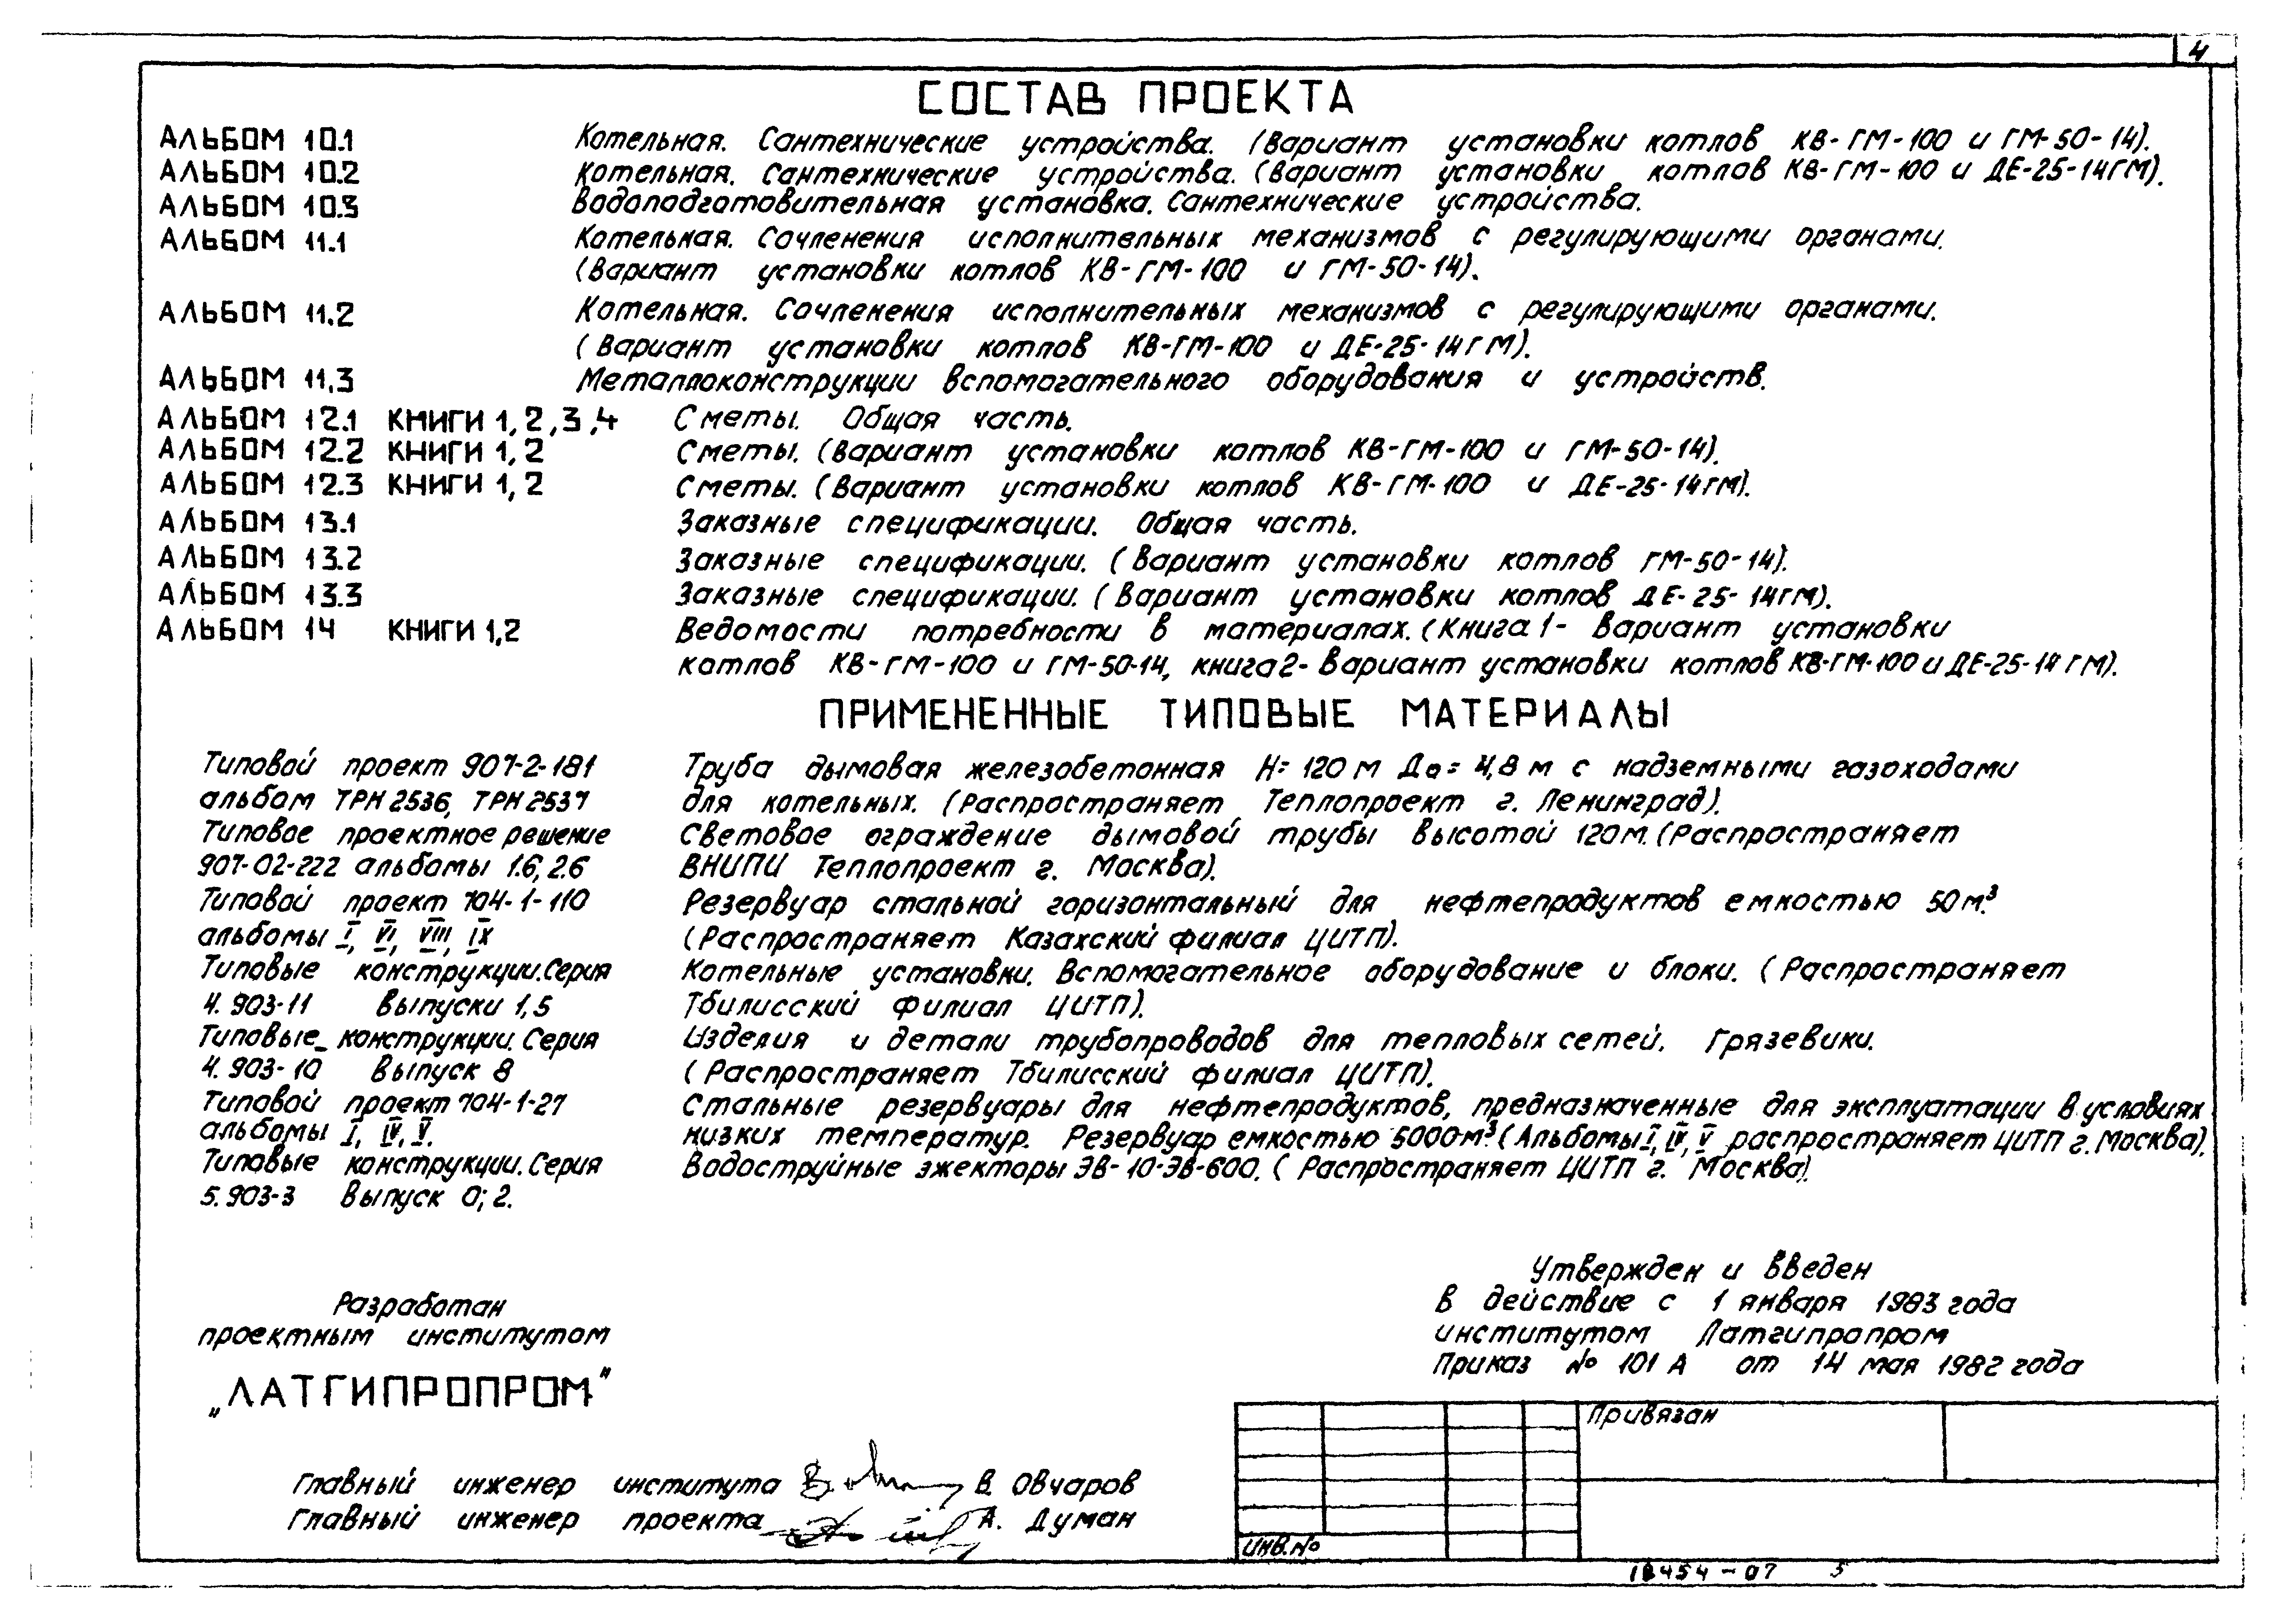 4
СОСТАВ ПРОЕКТА
АЛЬБОМ 10.1 Котельная. Сантехнические устройства. (Вариант установки котлов КВ-ГМ-100 и ГМ-50-14).
АЛЬБОМ 10.2 Котельная. Сантехнические устройства. (Вариант установки котлов КВ-ГМ-100 и ДЕ-25-14ГМ).
АЛЬБОМ 10.3 Водоподготовительная установка. Сантехнические устройства.
АЛЬБОМ 11.1 Котельная. Сочленения исполнительных механизмов с регулирующими органами.
(Вариант установки котлов КВ-ГМ-100 и ГМ-50-14).
АЛЬБОМ 11.2 Котельная. Сочленения исполнительных механизмов с регулирующими органами.
(Вариант установки котлов КВ-ГМ-100 и ДЕ-25-14ГМ).
АЛЬБОМ 11.3 Металлоконструкции вспомогательного оборудования и устройств.
АЛЬБОМ 12.1 КНИГИ 1,2,3,4 Сметы. Общая часть.
АЛЬБОМ 12.2 КНИГИ 1,2 Сметы. (Вариант установки котлов КВ-ГМ-100 и ГМ-50-14).
АЛЬБОМ 12.3 КНИГИ 1,2 Сметы. (Вариант установки котлов КВ-ГМ-100 и ДЕ-25-14ГМ).
АЛЬБОМ 13.1 Заказные спецификации. Общая часть.
АЛЬБОМ 13.2 Заказные спецификации. (Вариант установки котлов ГМ-50-14).
АЛЬБОМ 13.3 Заказные спецификации. (Вариант установки котлов ДЕ-25-14ГМ).
АЛЬБОМ 14 КНИГИ 1,2 Ведомости потребности в материалах. (Книга 1- Вариант установки
котлов КВ-ГМ-100 и ГМ-50-14, книга 2- Вариант установки котлов КВ-ГМ-100 и ДЕ-25-14ГМ).
ПРИМЕНЕННЫЕ ТИПОВЫЕ МАТЕРИАЛЫ
Типовой проект 907-2-181 Труба дымовая железобетонная Н= 120 м До= 4,8 м с надземными газоходами
альбом ТРН 2536, ТРН 2537 для котельных. (Распространяет Теплопроект г. Ленинград).
Типовое проектное решение Световое ограждение дымовой трубы высотой 120м. (Распространяет
907-02-222 альбомы 1.6, 2.6 ВНИПИ Теплопроект г. Москва).
Типовой проект 704-1-110 Резервуар стальной горизонтальный для нефтепродуктов емкостью 50 м.³
альбомы I, VI, VIII, IX (Распространяет Казахский филиал ЦИТП).
Типовые конструкции. Серия Котельные установки. Вспомогательное оборудование и блоки. (Распространяет
4.903-11 Выпуски 1,5 Тбилисский филиал ЦИТП).
Типовые конструкции. Серия Изделия и детали трубопроводов для тепловых сетей. Грязевики.
4.903-10 Выпуск 8 (Распространяет Тбилисский филиал ЦИТП).
Типовой проект 704-1-27 Стальные резервуары для нефтепродуктов, предназначенные для эксплуатации в условиях
альбомы I, IV, V. низких температур. Резервуар емкостью 5000м³ (Альбомы I, IV, V распространяет ЦИТП г. Москва).
Типовые конструкции. Серия Водоструйные эжекторы ЭВ-10-ЭВ-600. (Распространяет ЦИТП г. Москва).
5.903-3 Выпуск 0; 2.
Разработан
проектным институтом
„ЛАТГИПРОПРОМ"
Утвержден и введен
в действие с 1 января 1983 года
институтом Латгипропром
Приказ № 101 А от 14 мая 1982 года
Главный инженер института В. Овчаров
Главный инженер проекта А. Думан
Привязан
Инв. №
18454-07 5